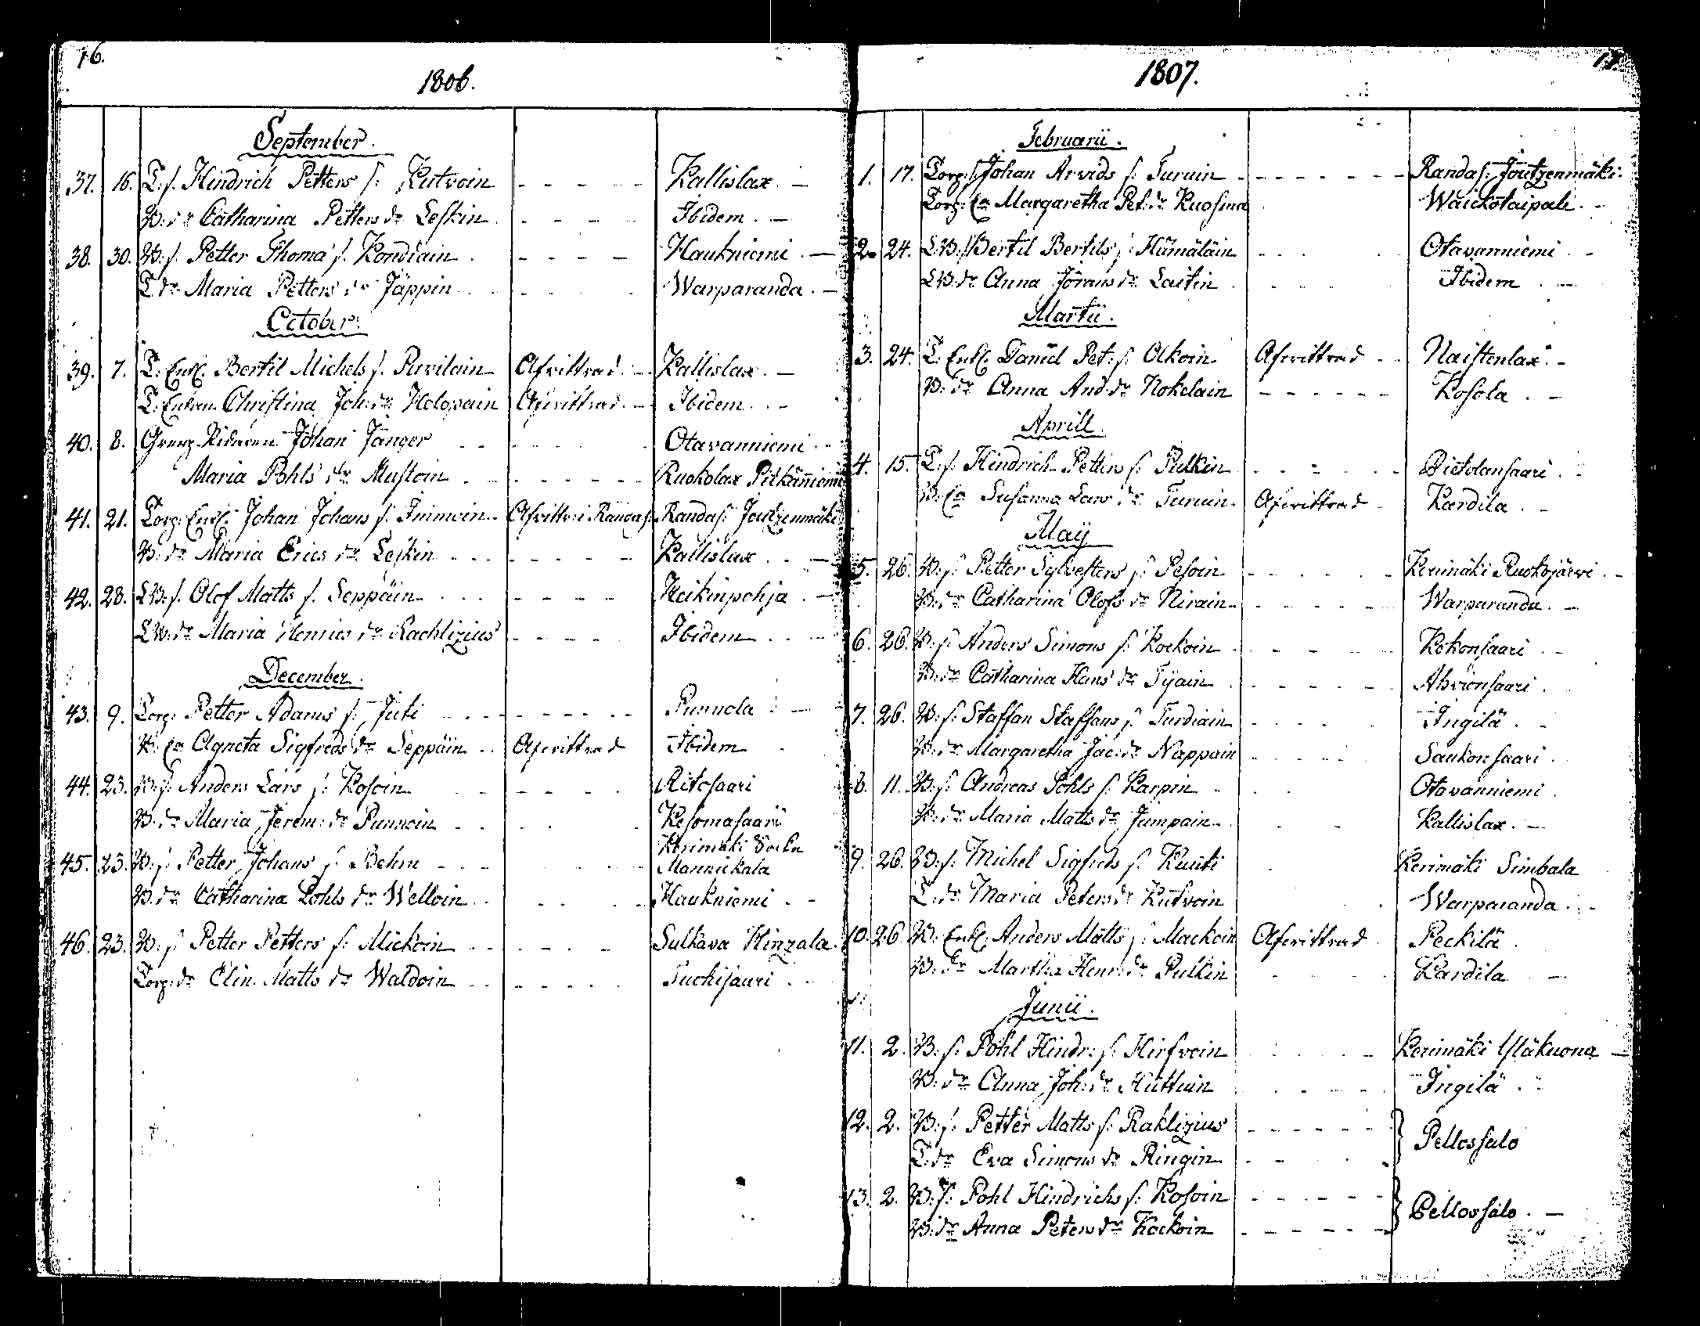 16.
1806.
September.
37. 16. T: s. Hindrich Petters s: Kutvoin - - - - - Kallislax. -
B: dr Catharina Petters dr Leskin - - - - Ibidem. -
38. 30. B: s. Petter Thoma s. Kondiain - - - - Haukniemi. -
T. dr Maria Petters dr Jäppin - - - - Warparanda. -
October.
39. 7. T. Enkl. Bertil Michels s. Parvilain Afvittrad. - Kallislax. -
T. Enkan Christina Joh: dr Holopain Afvittrad. - Ibidem. -
40. 8. Johan Janger - - - - Otavanniemi
Maria Pohls dr Mustoin - - - - Ruokolax Pitkäniemi
41. 21. Torp: Enkl: Johan Johans s. Immoin Afvittr: i Randas: Randas: Joutzenmäki
B: dr Maria Erics dr Leskin - - - - Kallislax - -
42. 28. LB: s. Olof Matts s. Seppäin - - - - Heikinpohja. -
LB: dr Maria Henrics dr Rachlizius - - - - Ibidem - -
December.
43. 9. Torp: Petter Adams s. Juti - - - - Punnola : -
B. Ea Agneta Sigfreds dr Seppäin Afvittrad Ibidem
44. 23. B: s. Anders Lars s: Kosoin - - - - Ritosaari
B: dr Maria Jerem: dr Punnoin - - - Kesamasaari
45. 23. B: s. Petter Johans s. Behm - - - - Kerimäki Sockn Mannikala
B: dr Catharina Pohls dr Welloin - - - - Haukniemi - -
46. 23. B: s. Petter Petters s: Mickoin - - - - Sulkava Hinzala.
Torp: dr Elin Matts dr Waldoin - - - - Tuckisaari - -
17.
1807.
Februarii.
1. 17. Torp: s. Johan Arvids s. Turuin - - - - Randas: Joutzenmäki.
Torp: Ea Margaretha Pet: dr Kuosma Waickotaipale -
2. 24. LB: s. Bertil Bertils s: Hämäläin - - - Otavanniemi - -
LB: dr Anna Jörans dr Laitin - - - Ibidem - -
Martii.
3. 24. T. Enkl. Daniel Pet: s. Olkoin Afvittrad - - Naistenlax. -
B: dr Anna And: dr Nokelain - - - - Kosola. -
Aprill.
4. 15. T: s. Hindrich Petters s. Pulkin - - - - Pietolansaari. -
B: Ea Susanna Lars dr Turuin Afvittrad - Kardila. -
May
5. 26. B: s. Petter Sylvesters s. Pesoin - - - - Kerimäki Ruokojärvi. -
B: dr Catharina Olofs dr Nirain - - - - Warparanda. -
6. 26. B: s. Anders Simons s: Kockoin - - - - Kokonsaari -
B: dr Catharina Hans dr Tijain - - - - Ahvionsaari.
7. 26. B: s. Staffan Staffans s. Turdiain - - - - Ingilä. -
B: dr Margaretha Jac: dr Nappain - - - - Saukonsaari.
8. 11. B: s. Andreas Pohls s. Karpin - - - Otavanniemi.
B: dr Maria Matts dr Jumpain - - Kallislax. -
9. 26. B: s. Michel Sigfrids s. Kuuti Kerimäki Simbala
T. dr Maria Peters dr Kutvoin Warparanda. -
10. 26 B: Enkl. Anders Matts s: Mackoin Afvittrad Peckilä.
B: dr Martha Henr: dr Pulkin - - - Kardila -
Junii.
11. 2. B: s. Pohl Hindr: s. Hirfvoin - - - - Kerimäki Yläkuona -
B: dr Anna Joh: dr Huttuin - - - - Ingilä.
12. 2. B: s. Petter Matts s. Raklizius - - - - Pellossalo
T: dr Eva Simons dr Ringin - - - -
13. 2. B: s. Pohl Hindrichs s. Kosoin - - - - Pellossalo. -
B: dr Anna Peters dr Kockoin - - - -